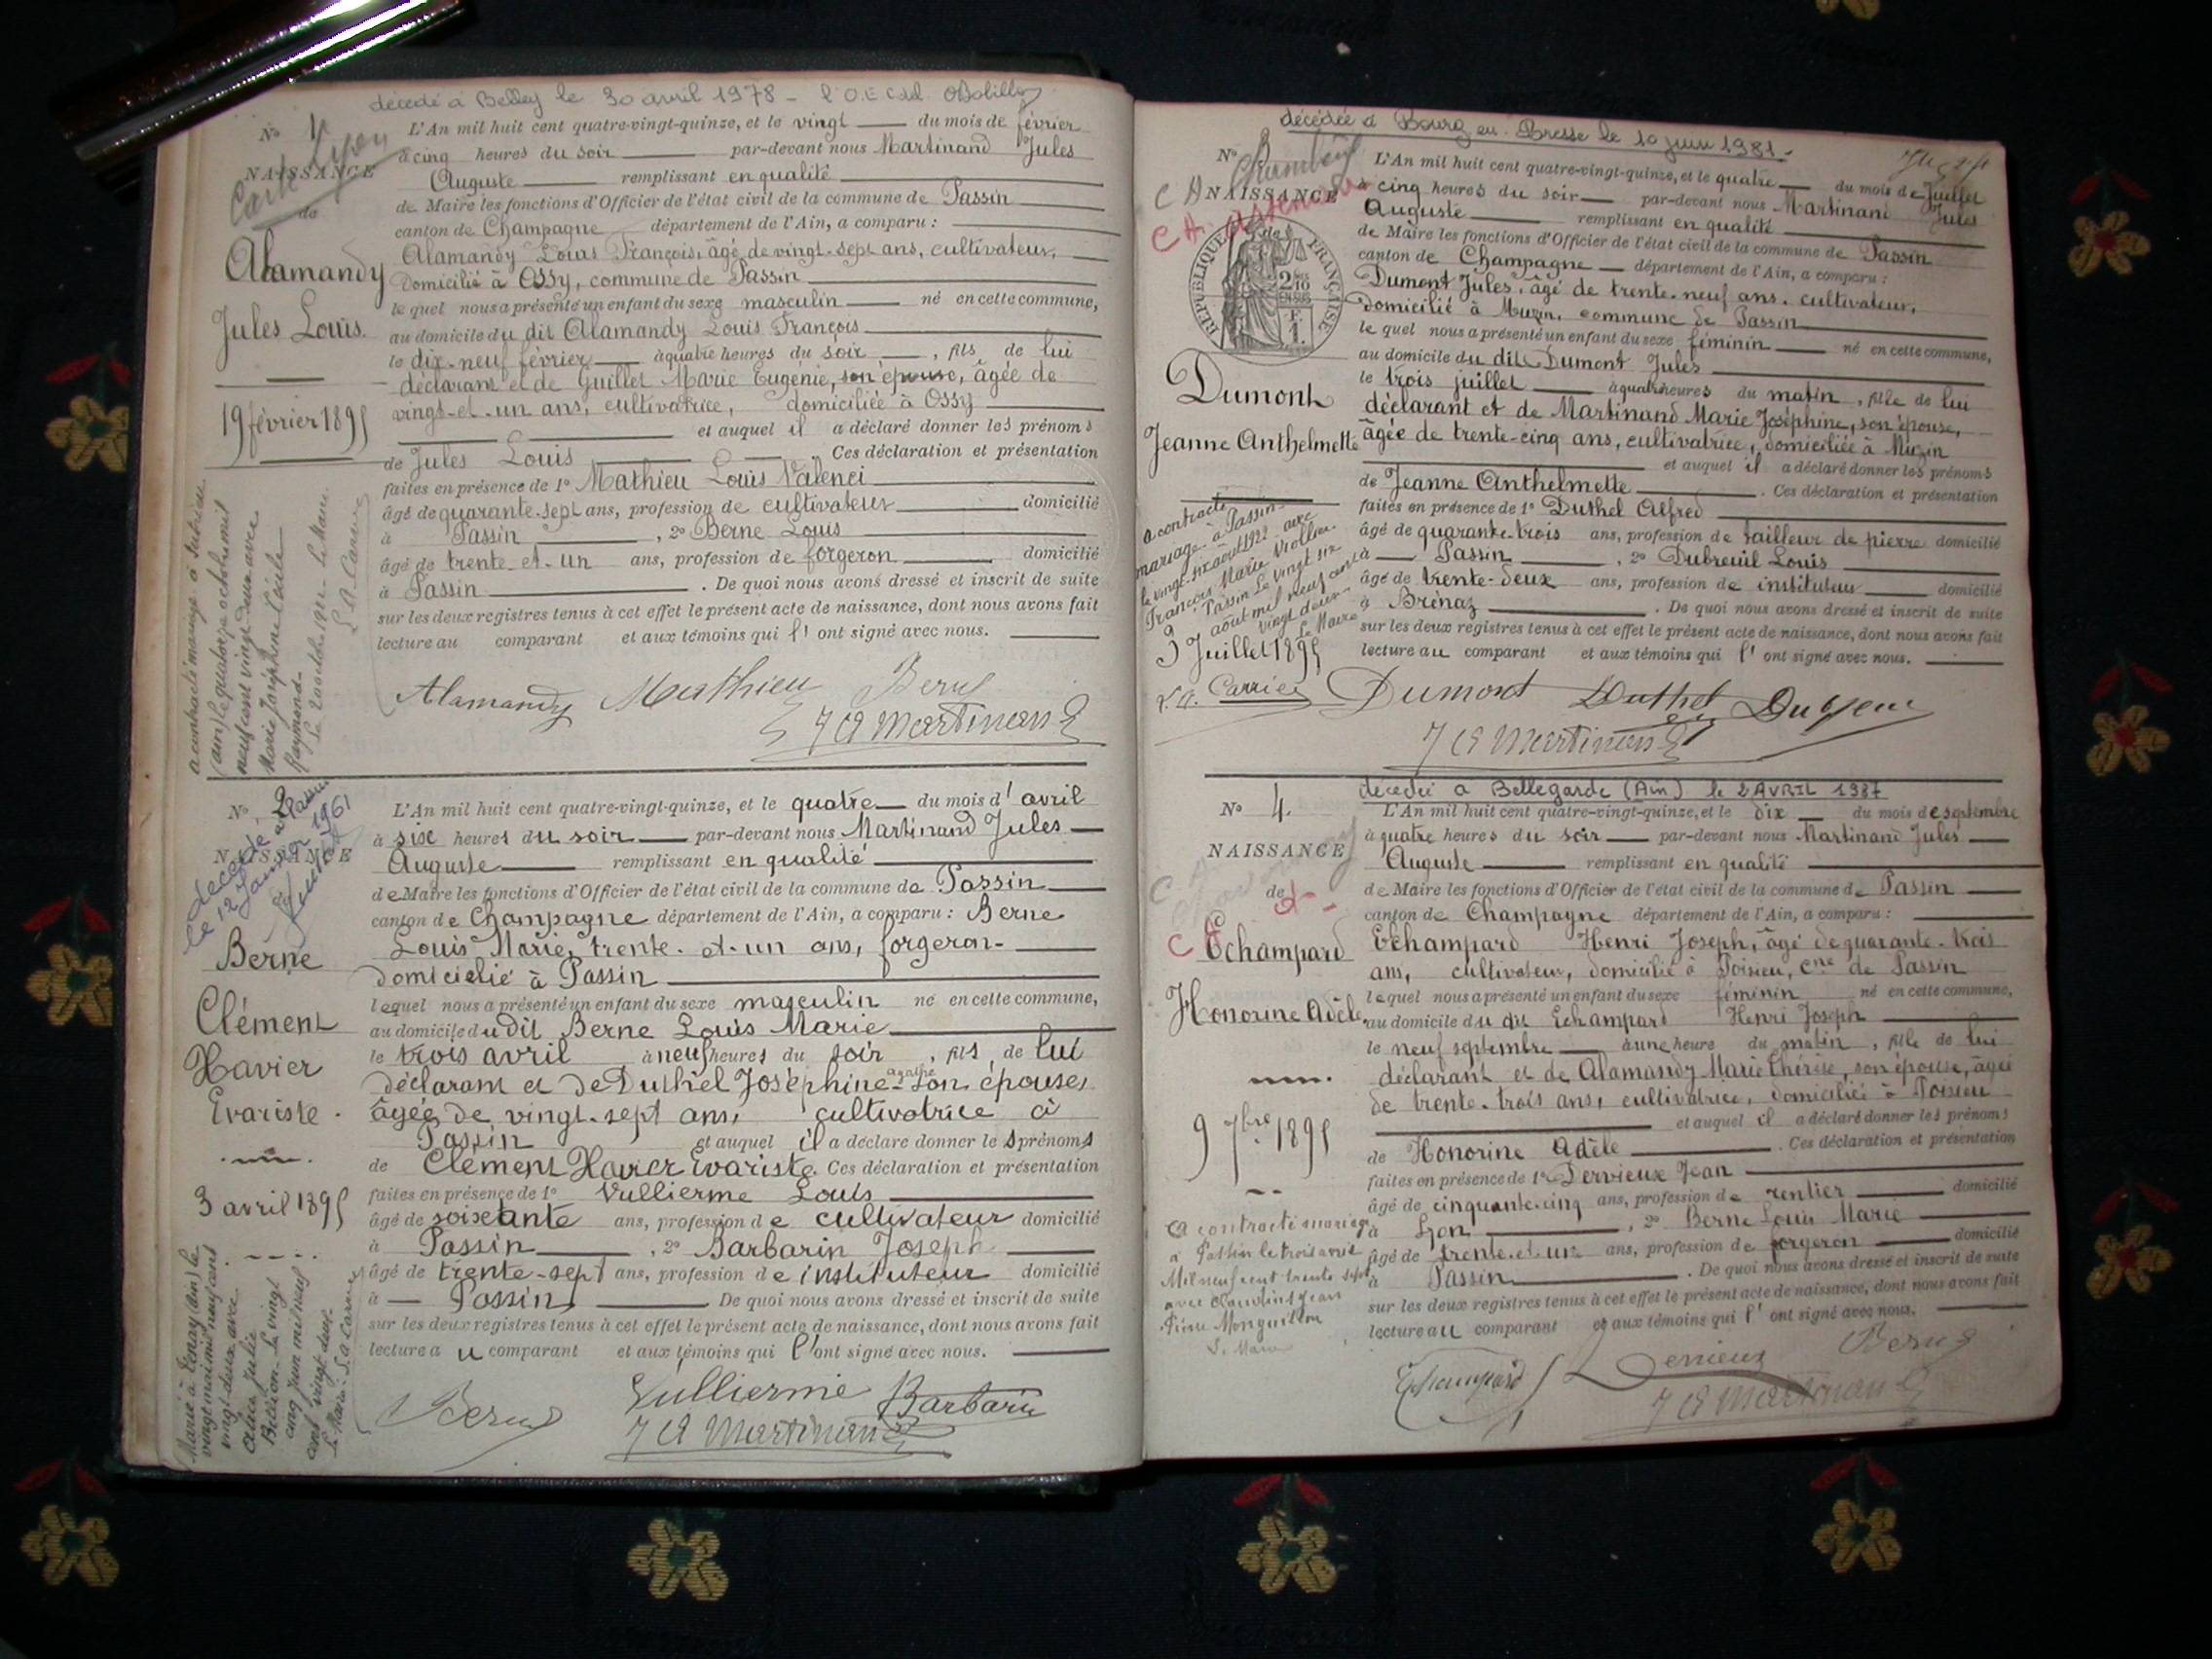 décédé à Belley le 30 avril 1978
No 1
NAISSANCE
de
Alamandy
Jules Louis.
19 février 1895
a contracté mariage à Sutrieu
(ain) le quatorze octobre mil
neuf cent vingt deux avec
Marie Joséphine Cécile
Raymond.
Le 20 octobre 1922 - Le Maire
L'An mil huit cent quatre-vingt-quinze, et le vingt du mois de février
à cinq heures du soir par-devant nous Martinand Jules
Auguste remplissant en qualité
de Maire les fonctions d'Officier de l'état civil de la commune de Passin
canton de Champagne département de l'Ain, a comparu :
Alamandy Louis François, âgé de vingt-sept ans, cultivateur,
Domicilié à Ossy, commune de Passin
le quel nous a présenté un enfant du sexe masculin né en cette commune,
au domicile du dit Alamandy Louis François
le dix-neuf février à quatre heures du soir, fils de lui
déclarant et de Guillet Marie Eugénie, son épouse, âgée de
vingt-et-un ans, cultivatrice, domiciliée à Ossy
et auquel il a déclaré donner les prénoms
de Jules Louis. Ces déclaration et présentation
faites en présence de 1° Mathieu Louis Valenci
âgé de quarante-sept ans, profession de cultivateur domicilié
à Passin, 2° Berne Louis
âgé de trente-et-un ans, profession de forgeron domicilié
à Passin. De quoi nous avons dressé et inscrit de suite
sur les deux registres tenus à cet effet le présent acte de naissance, dont nous avons fait
lecture au comparant et aux témoins qui l'ont signé avec nous.
Alamandy Mathieu Berne
J A Martinand
No 2
NAISSANCE
de
décédé à Passin
le 12 Janvier 1961
Berne
Clément
Xavier
Evariste.
3 avril 1895
Marié à Tenay (Ain) le
vingt mai mil neuf cent
vingt-deux avec
Julie
Le vingt
cinq juin mil neuf
cent vingt deux
Le Maire
L'An mil huit cent quatre-vingt-quinze, et le quatre du mois d'avril
à six heures du soir par-devant nous Martinand Jules
Auguste remplissant en qualité
de Maire les fonctions d'Officier de l'état civil de la commune de Passin
canton de Champagne département de l'Ain, a comparu : Berne
Louis Marie, trente-et-un ans, forgeron
domicielié à Passin
lequel nous a présenté un enfant du sexe masculin né en cette commune,
au domicile du dit Berne Louis Marie
le trois avril à neuf heures du soir, fils de lui
déclarant et de Duthel Joséphine agathe son épouse,
âgée de vingt-sept ans, cultivatrice à
Passin et auquel il a déclaré donner les prénoms
de Clément Xavier Evariste. Ces déclaration et présentation
faites en présence de 1° Vullierme Louis
âgé de soixante ans, profession de cultivateur domicilié
à Passin, 2° Barbarin Joseph
âgé de trente-sept ans, profession de instituteur domicilié
à Passin De quoi nous avons dressé et inscrit de suite
sur les deux registres tenus à cet effet le présent acte de naissance, dont nous avons fait
lecture au comparant et aux témoins qui l'ont signé avec nous.
Berne Vullierme Barbarin
J A Martinand
décédée à Bourg en Bresse le 10 juin 1981
No 3
NAISSANCE
de
RÉPUBLIQUE FRANÇAISE
Dumont
Jeanne Anthelmette
a contracté
mariage à Passin
le vingt-six août 1922 avec
François Marie
Passin Le vingt six
août mil neuf cent
vingt deux
Le Maire
3 Juillet 1895
L'An mil huit cent quatre-vingt-quinze, et le quatre du mois de Juillet
à cinq heures du soir par-devant nous Martinand Jules
Auguste remplissant en qualité
de Maire les fonctions d'Officier de l'état civil de la commune de Passin
canton de Champagne département de l'Ain, a comparu :
Dumont Jules, âgé de trente-neuf ans, cultivateur,
domicilié à Muzin, commune de Passin
le quel nous a présenté un enfant du sexe féminin né en cette commune,
au domicile du dit Dumont Jules
le trois juillet à quatre heures du matin, fille de lui
déclarant et de Martinand Marie Joséphine, son épouse,
âgée de trente-cinq ans, cultivatrice, domiciliée à Muzin
et auquel il a déclaré donner les prénoms
de Jeanne Anthelmette. Ces déclaration et présentation
faites en présence de 1° Duthel Alfred
âgé de quarante-trois ans, profession de tailleur de pierre domicilié
à Passin, 2° Dubreuil Louis
âgé de trente-deux ans, profession de instituteur domicilié
à Brénaz. De quoi nous avons dressé et inscrit de suite
sur les deux registres tenus à cet effet le présent acte de naissance, dont nous avons fait
lecture au comparant et aux témoins qui l'ont signé avec nous.
Dumont Duthel
J A Martinand
No 4.
NAISSANCE
de
Echampard
Honorine Adèle
9 7bre 1895
a contracté mariage
à Passin le trois avril
Mil neuf cent trente sept
avec
décédée à Bellegarde (Ain) le 2 AVRIL 1987
L'An mil huit cent quatre-vingt-quinze, et le dix du mois de septembre
à quatre heures du soir par-devant nous Martinand Jules
Auguste remplissant en qualité
de Maire les fonctions d'Officier de l'état civil de la commune de Passin
canton de Champagne département de l'Ain, a comparu :
Echampard Henri Joseph, âgé de quarante-trois
ans, cultivateur, domicilié à Poisieu, cne de Passin
lequel nous a présenté un enfant du sexe féminin né en cette commune,
au domicile du dit Echampard Henri Joseph
le neuf septembre à une heure du matin, fille de lui
déclarant et de Alamandy Marie Thérèse, son épouse, âgée
de trente-trois ans, cultivatrice, domiciliée à Poisieu
et auquel il a déclaré donner les prénoms
de Honorine Adèle. Ces déclaration et présentation
faites en présence de 1° Dervieux Jean
âgé de cinquante-cinq ans, profession de rentier domicilié
à Lyon, 2° Berne Louis Marie
âgé de trente-et-un ans, profession de forgeron domicilié
à Passin. De quoi nous avons dressé et inscrit de suite
sur les deux registres tenus à cet effet le présent acte de naissance, dont nous avons fait
lecture au comparant et aux témoins qui l'ont signé avec nous.
Echampard Dervieux Berne
J A Martinand